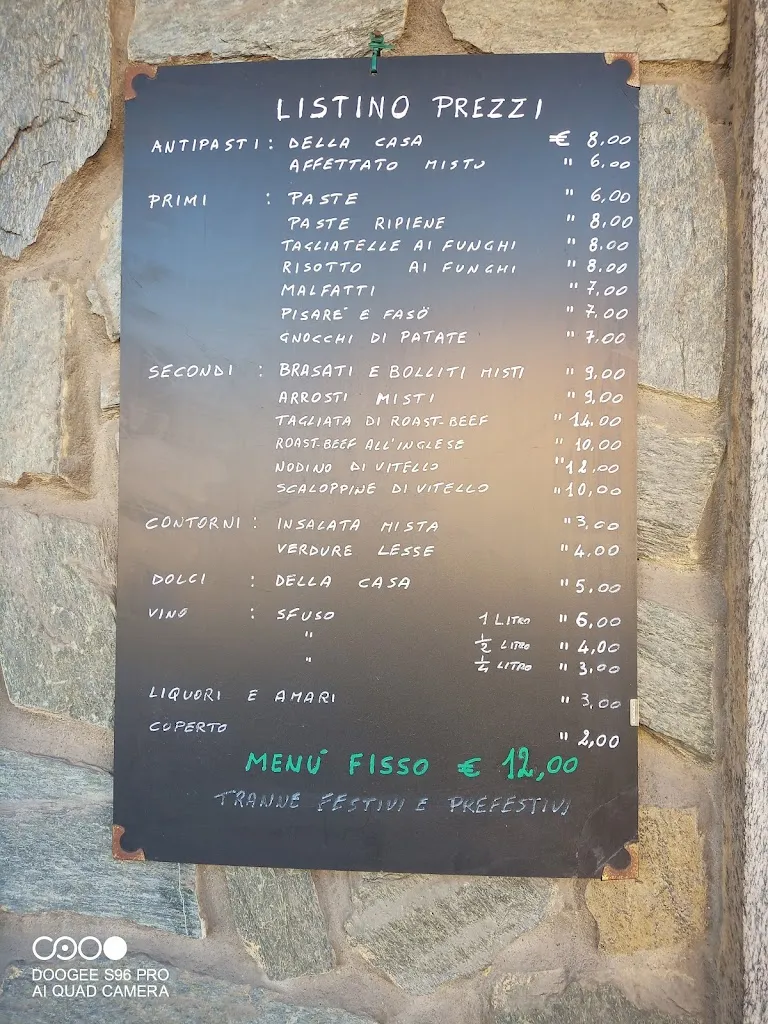 LISTINO PREZZI
ANTIPASTI: DELLA CASA € 8,00
AFFETTATO MISTO " 6,00
PRIMI : PASTE " 6,00
PASTE RIPIENE " 8,00
TAGLIATELLE AI FUNGHI " 8,00
RISOTTO AI FUNGHI " 8,00
MALFATTI " 7,00
PISARE' E FASÖ " 7,00
GNOCCHI DI PATATE " 7,00
SECONDI : BRASATI E BOLLITI MISTI " 9,00
ARROSTI MISTI " 9,00
TAGLIATA DI ROAST-BEEF " 14,00
ROAST-BEEF ALL'INGLESE " 10,00
NODINO DI VITELLO " 12,00
SCALOPPINE DI VITELLO " 10,00
CONTORNI : INSALATA MISTA " 3,00
VERDURE LESSE " 4,00
DOLCI : DELLA CASA " 5,00
VINO : SFUSO 1 LITRO " 6,00
" ½ LITRO " 4,00
" ¼ LITRO " 3,00
LIQUORI E AMARI " 3,00
COPERTO " 2,00
MENÙ FISSO € 12,00
TRANNE FESTIVI E PREFESTIVI
DOOGEE S96 PRO
AI QUAD CAMERA